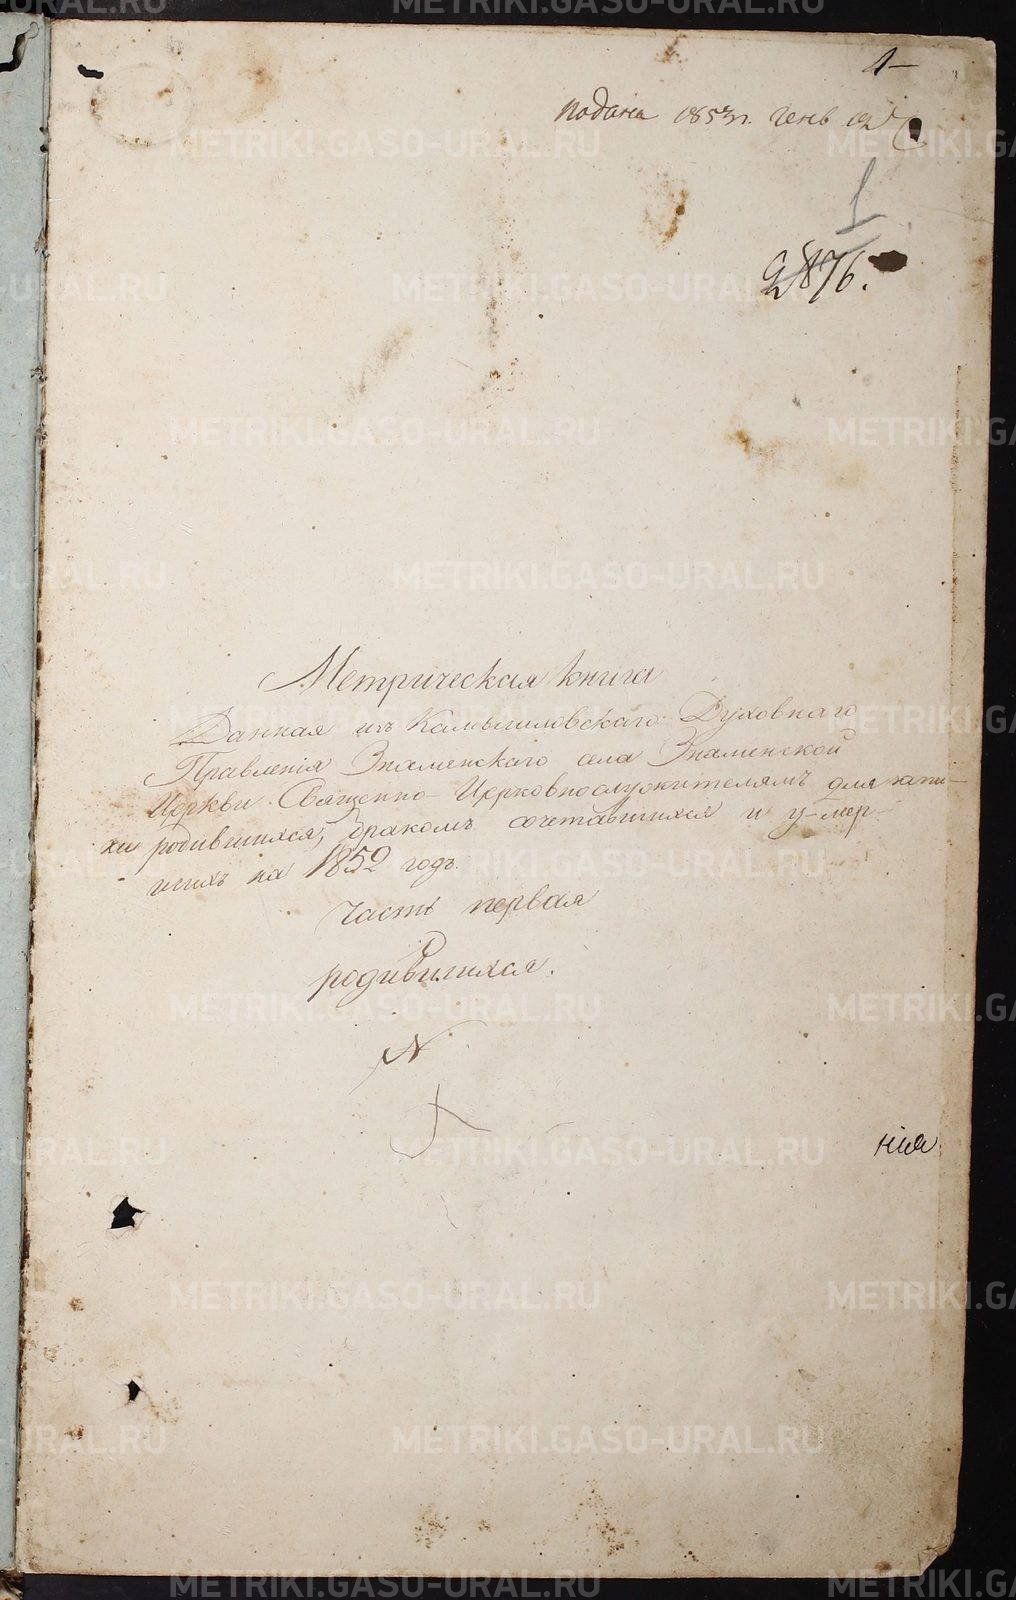 1
подана 1853 г. генв
1
9876.
Метрическая книга
Данная изъ Камышловскаго Духовнаго
Правленія Знаменскаго села Знаменской
Церкви Священно-Церковнослужителямъ для запи-
ки родившихся, бракомъ сочетавшихся и у-мер-
шихъ на 1852 годъ.
часть первая
родившихся.
нія
METRIKI.GASO-URAL.RU